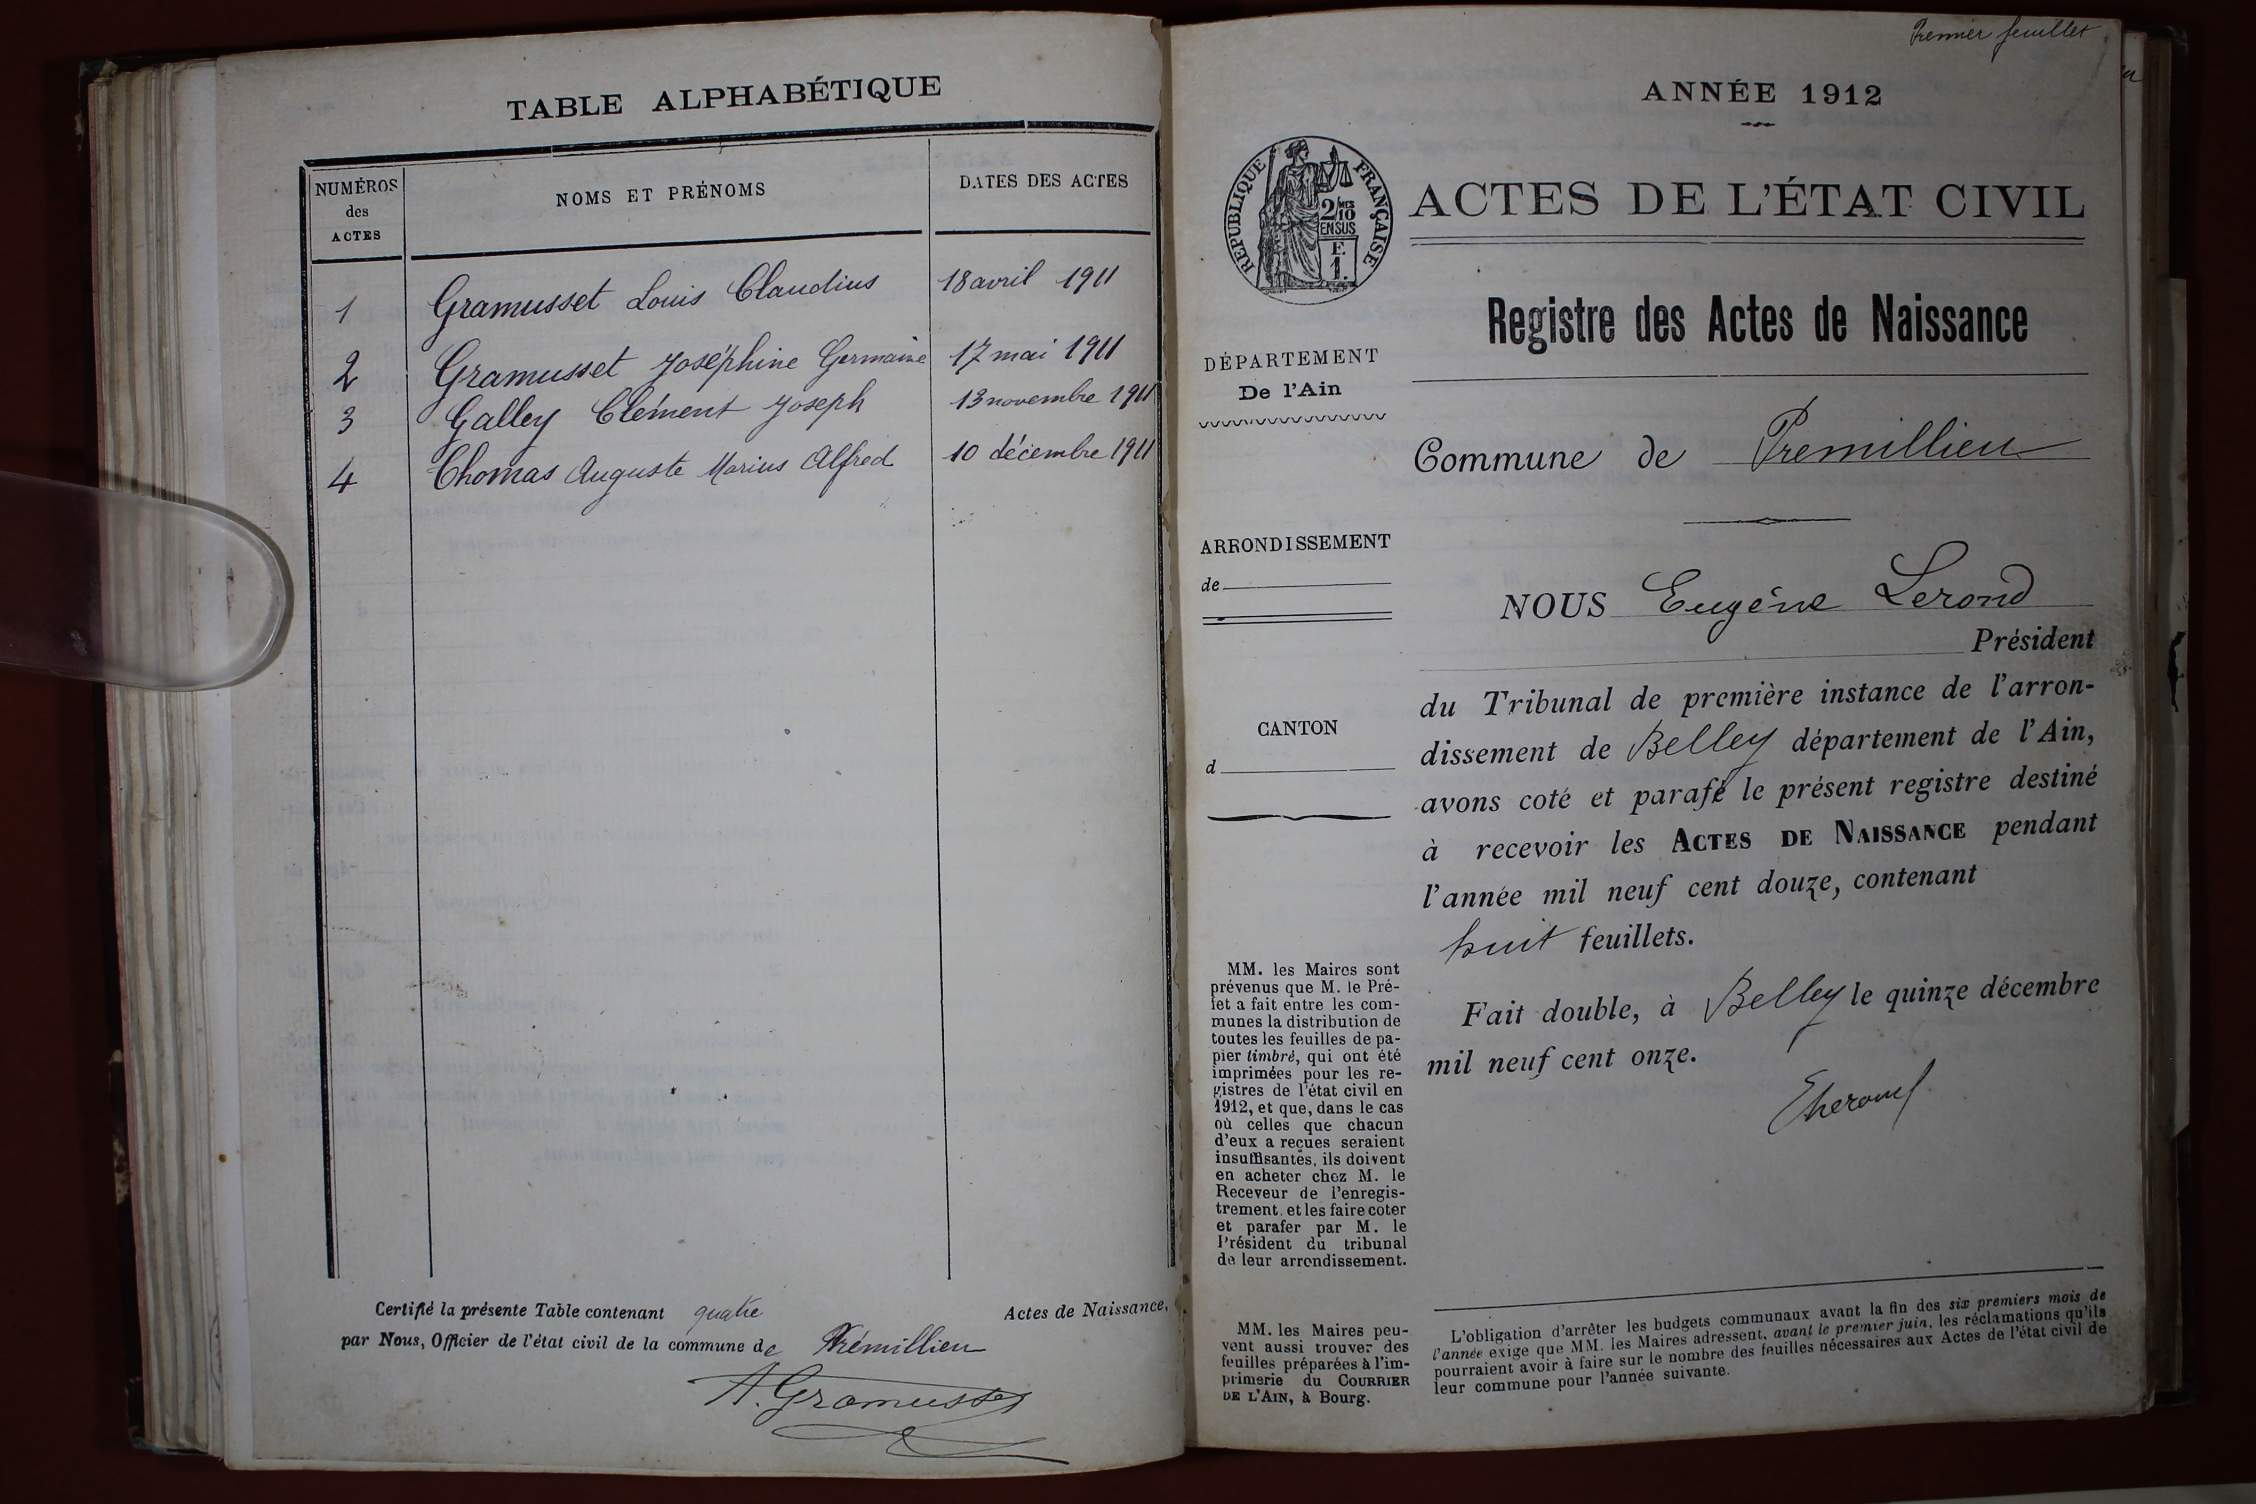 TABLE ALPHABÉTIQUE
NUMÉROS
des
ACTES
NOMS ET PRÉNOMS
DATES DES ACTES
1 Gramusset Louis Claudius 18 avril 1911
2 Gramusset Joséphine Germaine 17 mai 1911
3 Galley Clément Joseph 13 novembre 1911
4 Thomas Auguste Marius Alfred 10 décembre 1911
Certifié la présente Table contenant quatre Actes de Naissance,
par Nous, Officier de l'état civil de la commune de Prémillieu
A. Gramusset
Premier feuillet
ANNÉE 1912
RÉPUBLIQUE FRANÇAISE
2/10
EN SUS
F.
1.
ACTES DE L'ÉTAT CIVIL
Registre des Actes de Naissance
DÉPARTEMENT
De l'Ain
Commune de Premillieu
ARRONDISSEMENT
de
CANTON
d
NOUS Eugène Lerond
Président
du Tribunal de première instance de l'arron-
dissement de Belley département de l'Ain,
avons coté et parafé le présent registre destiné
à recevoir les ACTES DE NAISSANCE pendant
l'année mil neuf cent douze, contenant
huit feuillets.
Fait double, à Belley le quinze décembre
mil neuf cent onze.
MM. les Maires sont
prévenus que M. le Pré-
fet a fait entre les com-
munes la distribution de
toutes les feuilles de pa-
pier timbré, qui ont été
imprimées pour les re-
gistres de l'état civil en
1912, et que, dans le cas
où celles que chacun
d'eux a reçues seraient
insuffisantes, ils doivent
en acheter chez M. le
Receveur de l'enregis-
trement, et les faire coter
et parafer par M. le
Président du tribunal
de leur arrondissement.
MM. les Maires peu-
vent aussi trouver des
feuilles préparées à l'im-
primerie du COURRIER
DE L'AIN, à Bourg.
L'obligation d'arrêter les budgets communaux avant la fin des six premiers mois de
l'année exige que MM. les Maires adressent, avant le premier juin, les réclamations qu'ils
pourraient avoir à faire sur le nombre des feuilles nécessaires aux Actes de l'état civil de
leur commune pour l'année suivante.